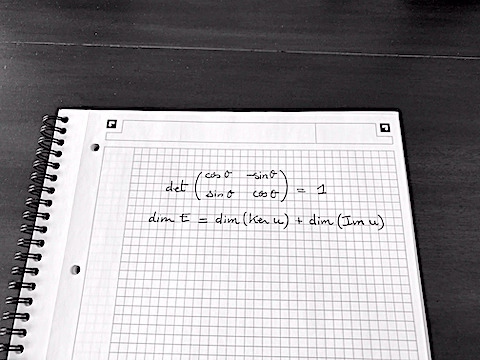 det (cos θ -sin θ
sin θ cos θ) = 1
dim E = dim (Ker u) + dim (Im u)